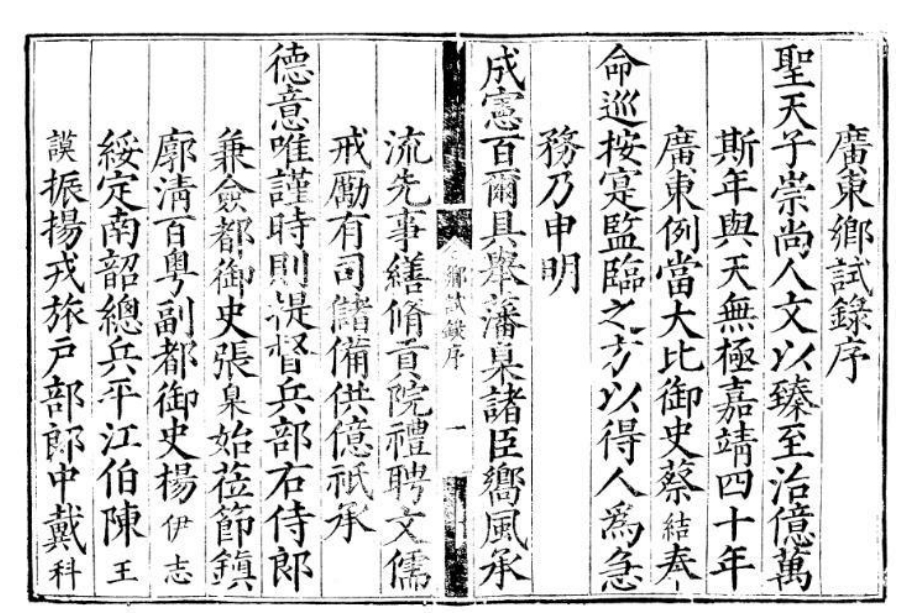 廣東鄉試錄序
聖天子崇尚人文以臻至治億萬
斯年與天無極嘉靖四十年
廣東例當大比御史蔡結奉
命巡按寔監臨之方以得人爲急
務乃申明
成憲百爾具舉藩臬諸臣嚮風承
鄉試錄序 一
流先事繕脩貢院禮聘文儒
戒勵有司儲備供億祇承
德意唯謹時則提督兵部右侍郎
兼僉都御史張臬始莅節鎮
廓清百粵副都御史楊伊志
綏定南韶總兵平江伯陳王
謨振揚戎旅戶部郎中戴科